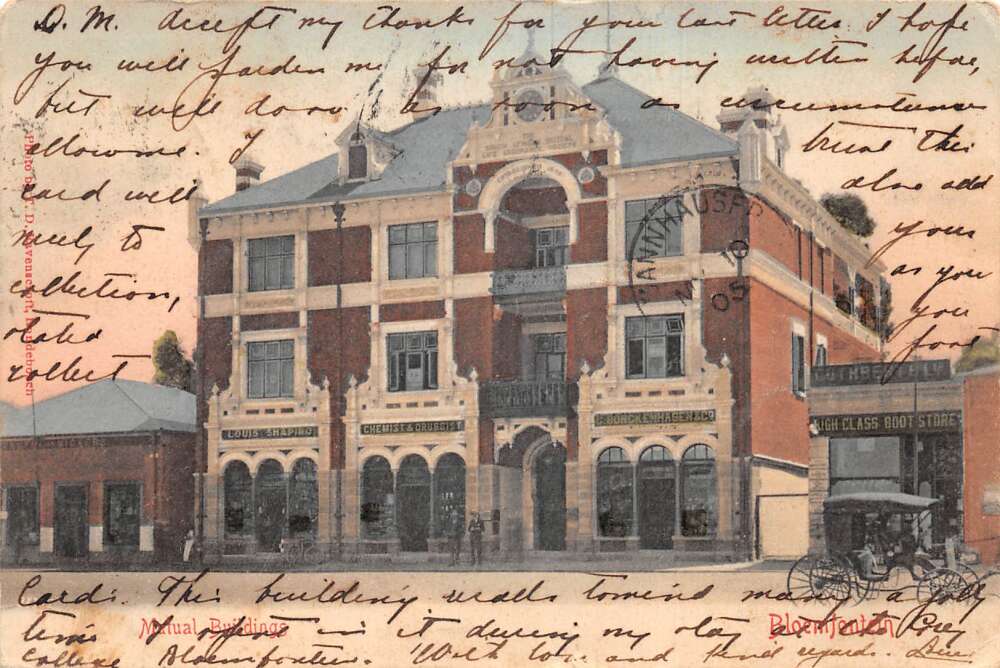 D. M. Accept my thanks for your last letter. I hope
you will pardon me for not having written before,
but will do so as soon as circumstances
allow me. I trust this
Card will also add
nicely to your
collection, as you
you
for
Card: This building calls to mind many a jolly
time I spent in it during my stay at the Grey
College Bloemfontein. With love and kind regards.
LOUIS SHAPIRO
CHEMIST & DRUGGIST
G. BORCKENHAGEN & Co
HIGH CLASS BOOT STORE
DANNHAUSER
10
05
Mutual Buildings
Bloemfontein
Photo by T. D. Ravenscroft, Rondebosch